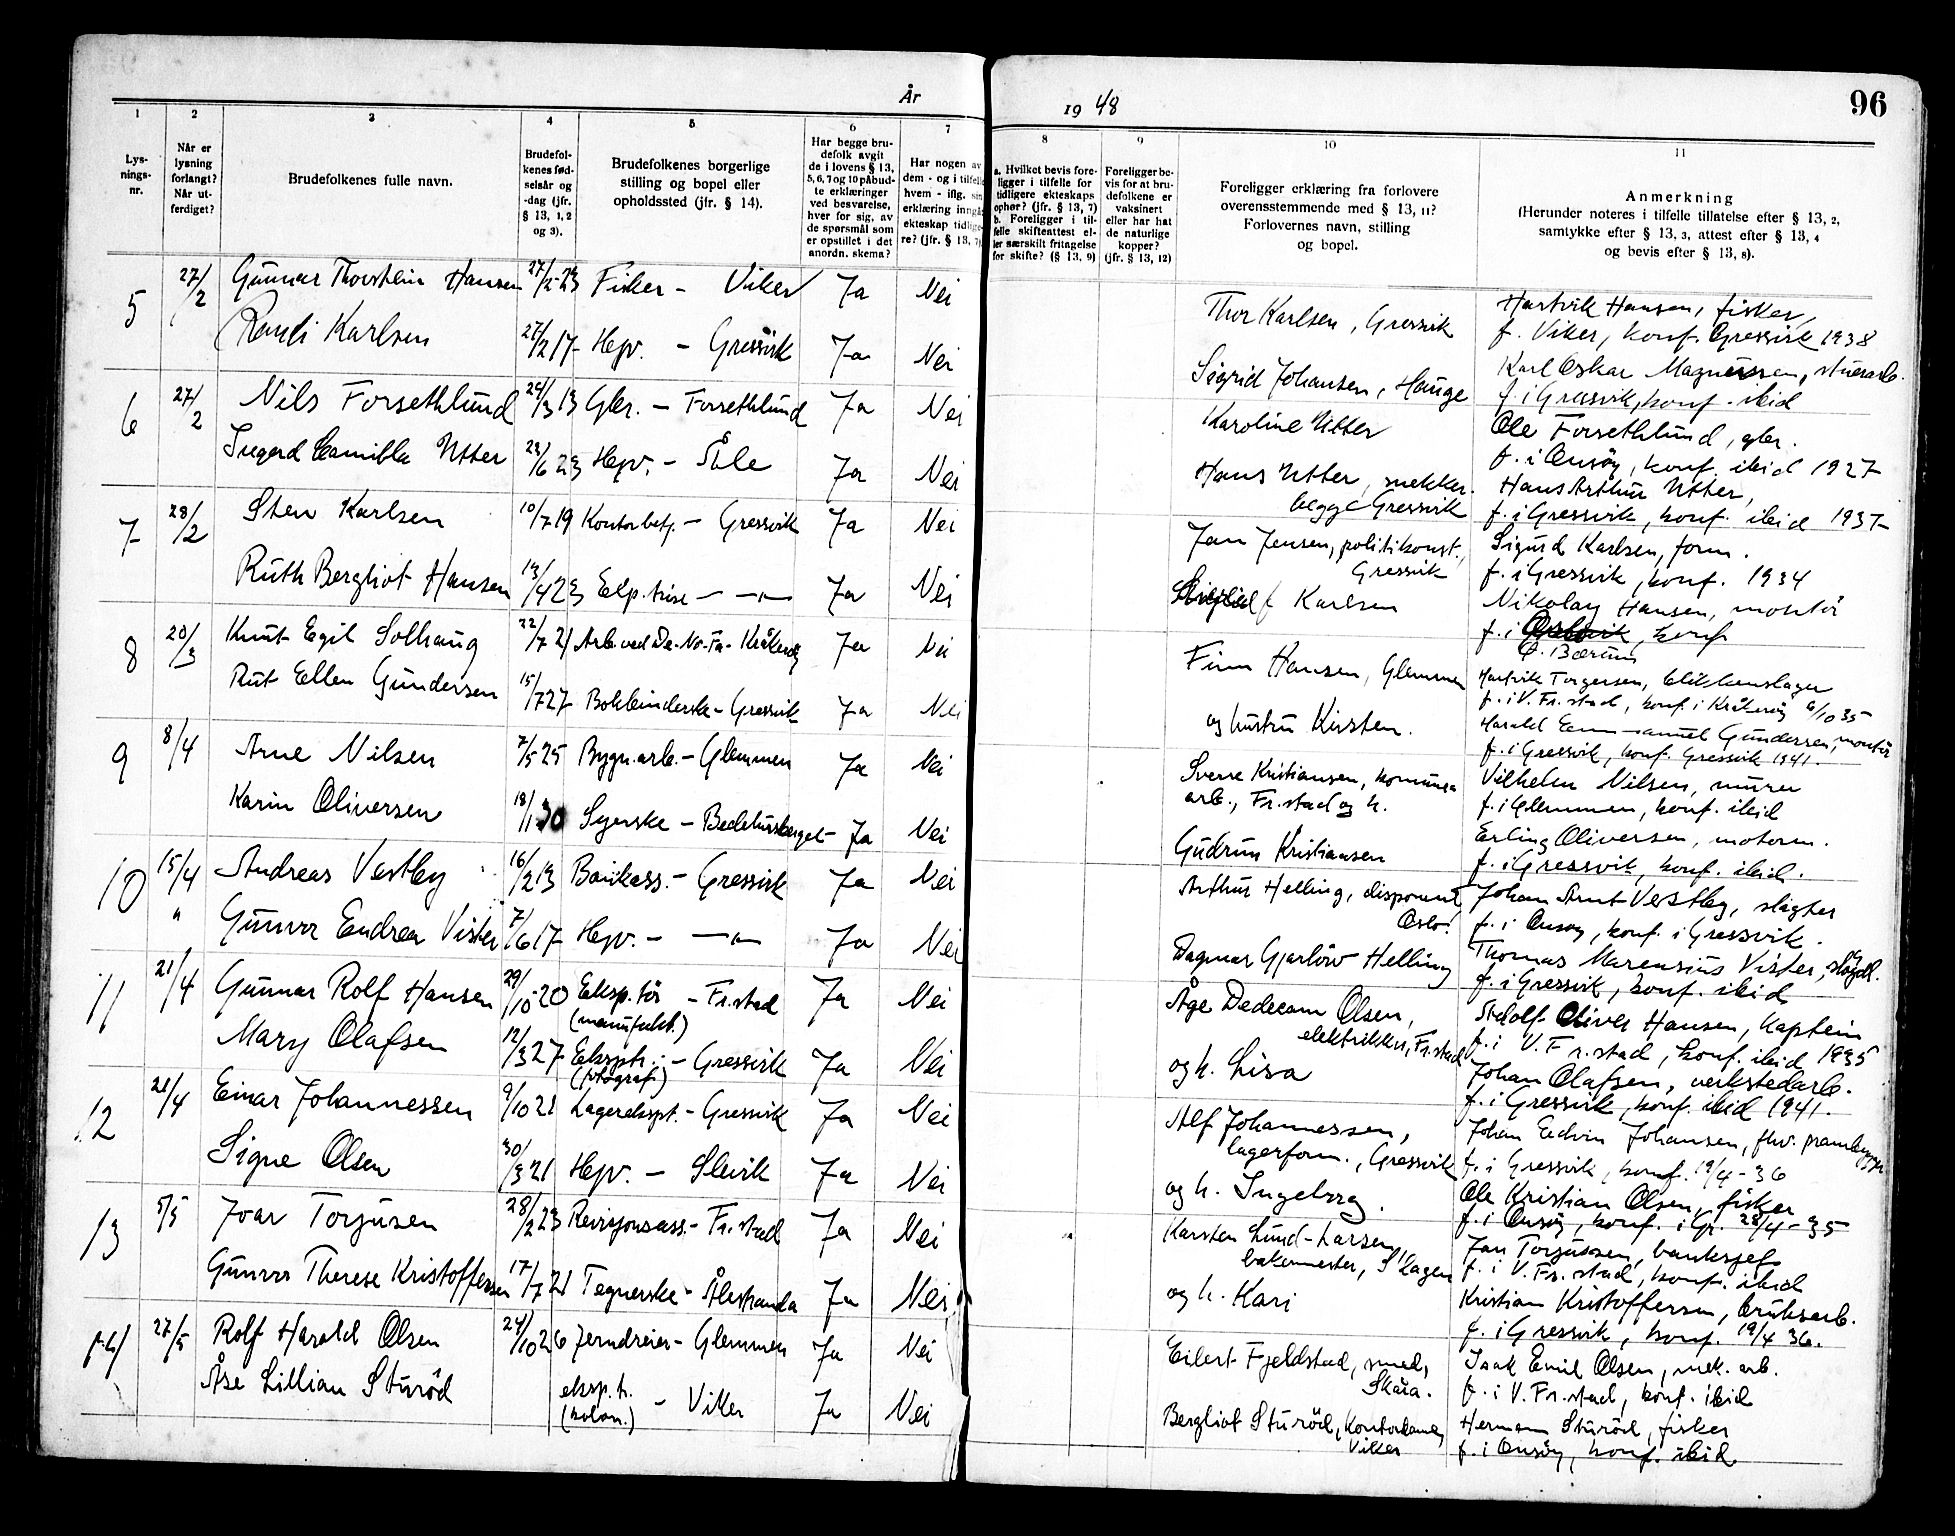 År
1948
96
1
2
3
4
5
6
7
8
9
10
11
Lys-
nings-
nr.
Når er
lysning
forlangt?
Når ut-
ferdiget?
Brudefolkenes fulle navn.
Brudefol-
kenes fød-
selsår og
-dag (jfr.
§ 13, 1, 2
og 3).
Brudefolkenes borgerlige
stilling og bopel eller
opholdssted (jfr. § 14).
Har begge bru-
defolk avgit
de i lovens § 13,
5, 6, 7 og 10 påbud-
te erklæringer
ved besvarelse,
hver for sig, av
de spørsmål som
er opstillet i det
anordn. skema?
Har nogen av
dem - og i tilfelle
hvem - iflg. sin
erklæring inngå
ekteskap tidlige-
re? (jfr. § 13, 7)
a. Hvilket bevis fore-
ligger i tilfelle for
tidligere ekteskaps
ophør? (jfr. § 13, 7)
b. Foreligger i til-
felle skifteattest el-
ler særskilt fritagelse
for skifte? (§ 13, 9)
Foreligger be-
vis for at bru-
defolkene er
vaksinert
eller har hat
de naturlige
kopper?
(jfr. § 13, 12)
Foreligger erklæring fra forlovere
overensstemmende med § 13, 11?
Forlovernes navn, stilling
og bopel.
Anmerkning
(Herunder noteres i tilfelle tillatelse efter § 13, 2,
samtykke efter § 13, 3, attest efter § 13, 4
og bevis efter § 13, 8).
5 27/2 Gunnar Thorstein Hansen 27/2-23 Fisker - Viker Ja Nei
Randi Karlsen 27/2 17 Hgv. - Gressvik Ja Nei
Thor Karlsen, Gressvik
Sigrid Johansen, Hauge
Hartvik Hansen, fisker,
f. Viker, konf. Gressvik 1938
Karl Oskar Magnussen, stuerarb.
f. i Gressvik, konf. ibid
6 27/2 Nils Forsethlund 24/3 13 Gbr. - Forsethlund Ja Nei
Ingerd Camilla Utter 23/6 23 Hgv. - Åle Ja Nei
Karoline Utter
Hans Utter, snekker.
begge Gressvik
Ole Forsethlund, gbr.
f. i Onsøy, konf. ibid 1927
Hans Arthur Utter,
f. i Gressvik, konf. ibid 1937
7 28/2 Sten Karlsen 10/7 19 Kontorbetj. - Gressvik Ja Nei
Ruth Bergliot Hansen 13/4 23 Eksp.trise - -"- Ja Nei
Jan Jensen, politikonst.,
Gressvik
f Karlsen
Sigurd Karlsen, form.
f. i Gressvik, konf. 1934
Nikolay Hansen, montør
f. i , konf
Ø. Bærum
8 20/3 Knut Egil Solhaug 22/7 21 Arb. ved De-No-Fa - Kråkerøy Ja Nei
Rut Ellen Gundersen 15/7 27 Bokbinderske - Gressvik Ja Nei
Finn Hansen, Glemmen
og hustru Kirsten.
Hartvik Torgersen, blikkenslager
f. i V. Fr.stad, konf. i Kråkerøy 6/10 35
Harald Gundersen, montør
f. i Gressvik, konf. Gressvik 1941.
9 8/4 Arne Nilsen 7/5 25 Bygn.arb. - Glemmen Ja Nei
Karin Oliversen 18/1 30 Syerske - Bedehusberget - Ja Nei
Sverre Kristiansen, kommune
arb., Fr.stad og h.
Gudrun Kristiansen
Vilhelm Nilsen, murer
f. i Glemmen, konf. ibid
Erling Oliversen, motorm.
f. i Gressvik, konf. ibid.
10 15/4 Andreas Vestby 16/2 13 Bankass. - Gressvik Ja Nei
" Gunvor Endrea Vister 7/6 17 Hgv. - -"- Ja Nei
Arthur Helling, disponent,
Oslo.
Dagmar Gjarløw Helling
Johan Arnt Vestby, slagter
f. i Onsøy, konf. i Gressvik.
Thomas Marensius Vister,
f. i Gressvik, konf. ibid
11 21/4 Gunnar Rolf Hansen 29/10-20 Eksp.tør - Fr.stad Ja Nei
(manufakt.)
Mary Olafsen 12/3 27 Eksptr. - Gressvik Ja Nei
(fotografi)
Åge Dedecam Olsen,
elektriker, Fr.stad
og h. Lisa
Adolf Oliver Hansen, kaptein
f. i V. Fr.stad, konf. ibid 1935
Johan Olafsen, verkstedarb.
f. i Gressvik, konf. ibid 1941.
12 21/4 Einar Johannessen 9/10 21 Lagerekspt. - Gressvik Ja Nei
Signe Olsen 30/3 21 Hgv. - Slevik Ja Nei
Alf Johannessen,
lagerform., Gressvik
og h. Ingeborg.
Johan Edvin Johansen, fhv. prambygger
f. i Gressvik, konf. 19/4 - 36
Ole Kristian Olsen, fisker
f. i Onsøy, konf. i Gr. 28/4 - 35
13 5/5 Joar Torjusen 28/2 23 Revisjonsass. - Fr.stad Ja Nei
Gunvor Therese Kristoffersen 17/7 21 Tegnerske - Ålestranda Ja Nei
Karsten Lund-Larsen,
bakermester, S'lagen
og h. Kari
Jan Torjussen, banksjef
f. i V. Fr.stad, konf. ibid
Kristian Kristoffersen, bruksarb.
f. i Gressvik, konf. 19/4 36.
14 27/5 Rolf Harald Olsen 24/10 26 Jerndreier - Glemmen Ja Nei
Åse Lillian Sturød eksp.tr. - Viker Ja Nei
(kolon.)
Eilert Fjeldstad, smed,
Skåra.
Bergliot Sturød, kontordame,
Viker
Isak Emil Olsen, mek. arb.
f. i V. Fr.stad, konf. ibid
Herman Sturød, fisker
f. i Onsøy, konf. ibid